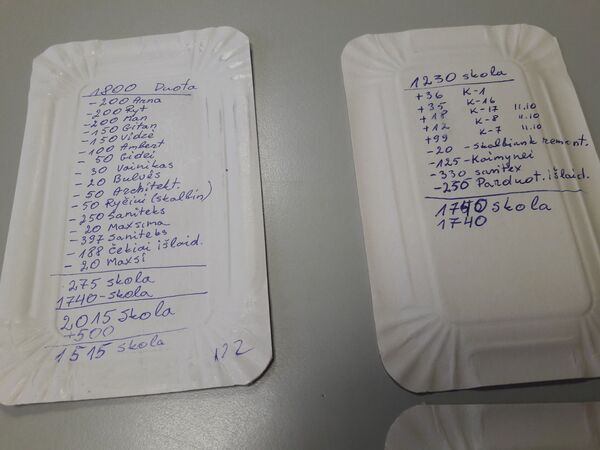 1800 Duota
-200 Anna
-200 Ryt
-200 Man
-150 Gitan
-150 Vidze
-100 Ambert
- 50 Gidei
- 30 Vainikas
- 20 Bulvės
- 50 Architekt.
- 50 Ryčiui (skalbin)
- 250 Saniteks
- 20 Maxsima
- 397 Saniteks
- 188 Čekiai išlaid.
- 20 Maxsi
275 skola
1740-skola
2015 skola
+500
1515 skola
N2
1230 skola
+36 K-1
+35 K-16
+18 K-17 11.10
+12 K-8 11.10
+99 K-7 11.10
-20 - skalbiank remont.
-125-Kaimynei
-330 sanitex
-250 Parduot. išlaid.
1740 skola
1740